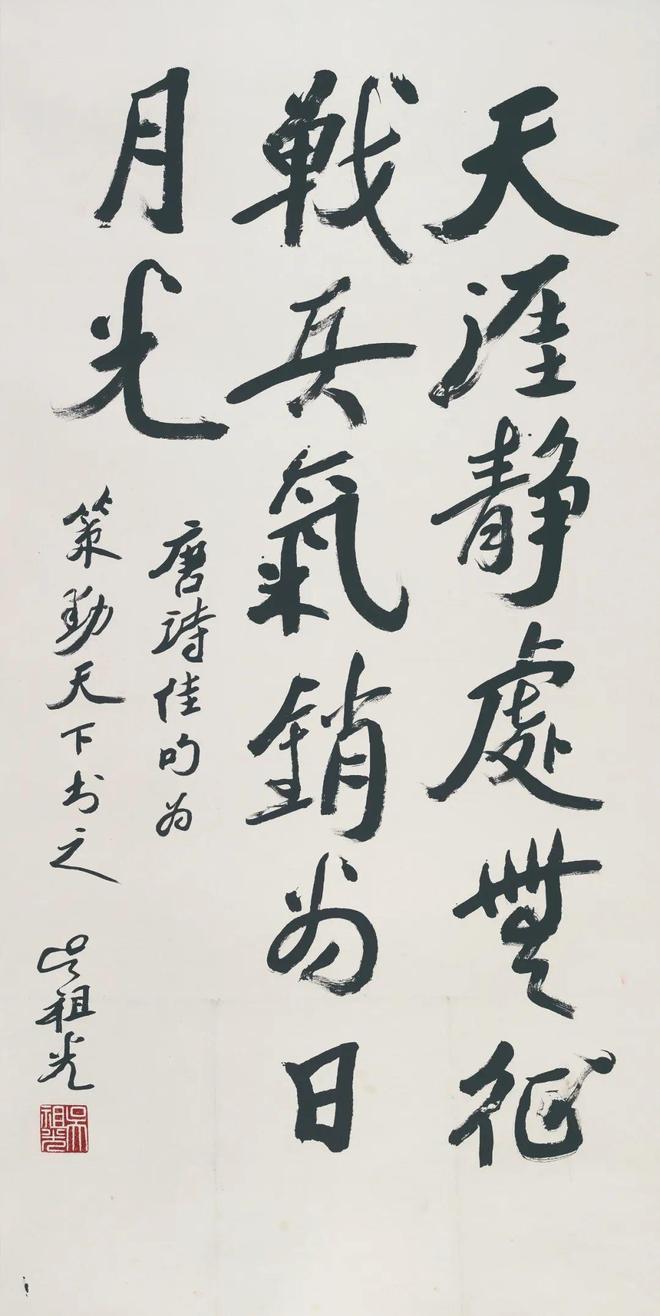 天涯靜處無征
戰兵氣銷為日
月光
唐詩佳句为
策動天下書之
吴祖光
吳祖光